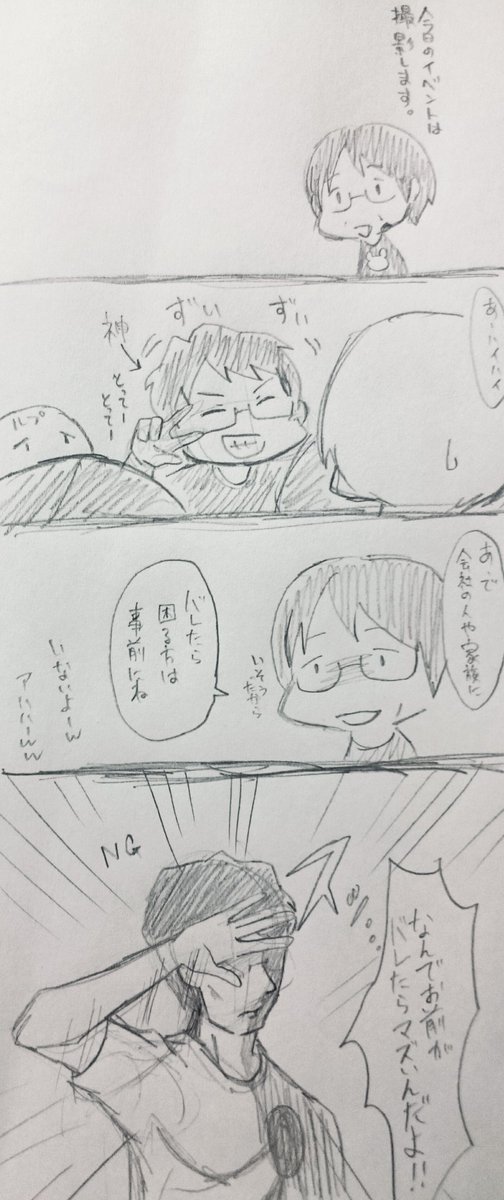 今日のイベントは
撮影します。
あ、ハイハイ
ずい
ずい
神
とってー
とってー
ルプ
イイ
あ、で
会社の人や家族に
バレたら
困る方は
事前にね
いそうだから
いないよーw
アハハーww
NG
なんでお前が
バレたらマズいんだよ!!